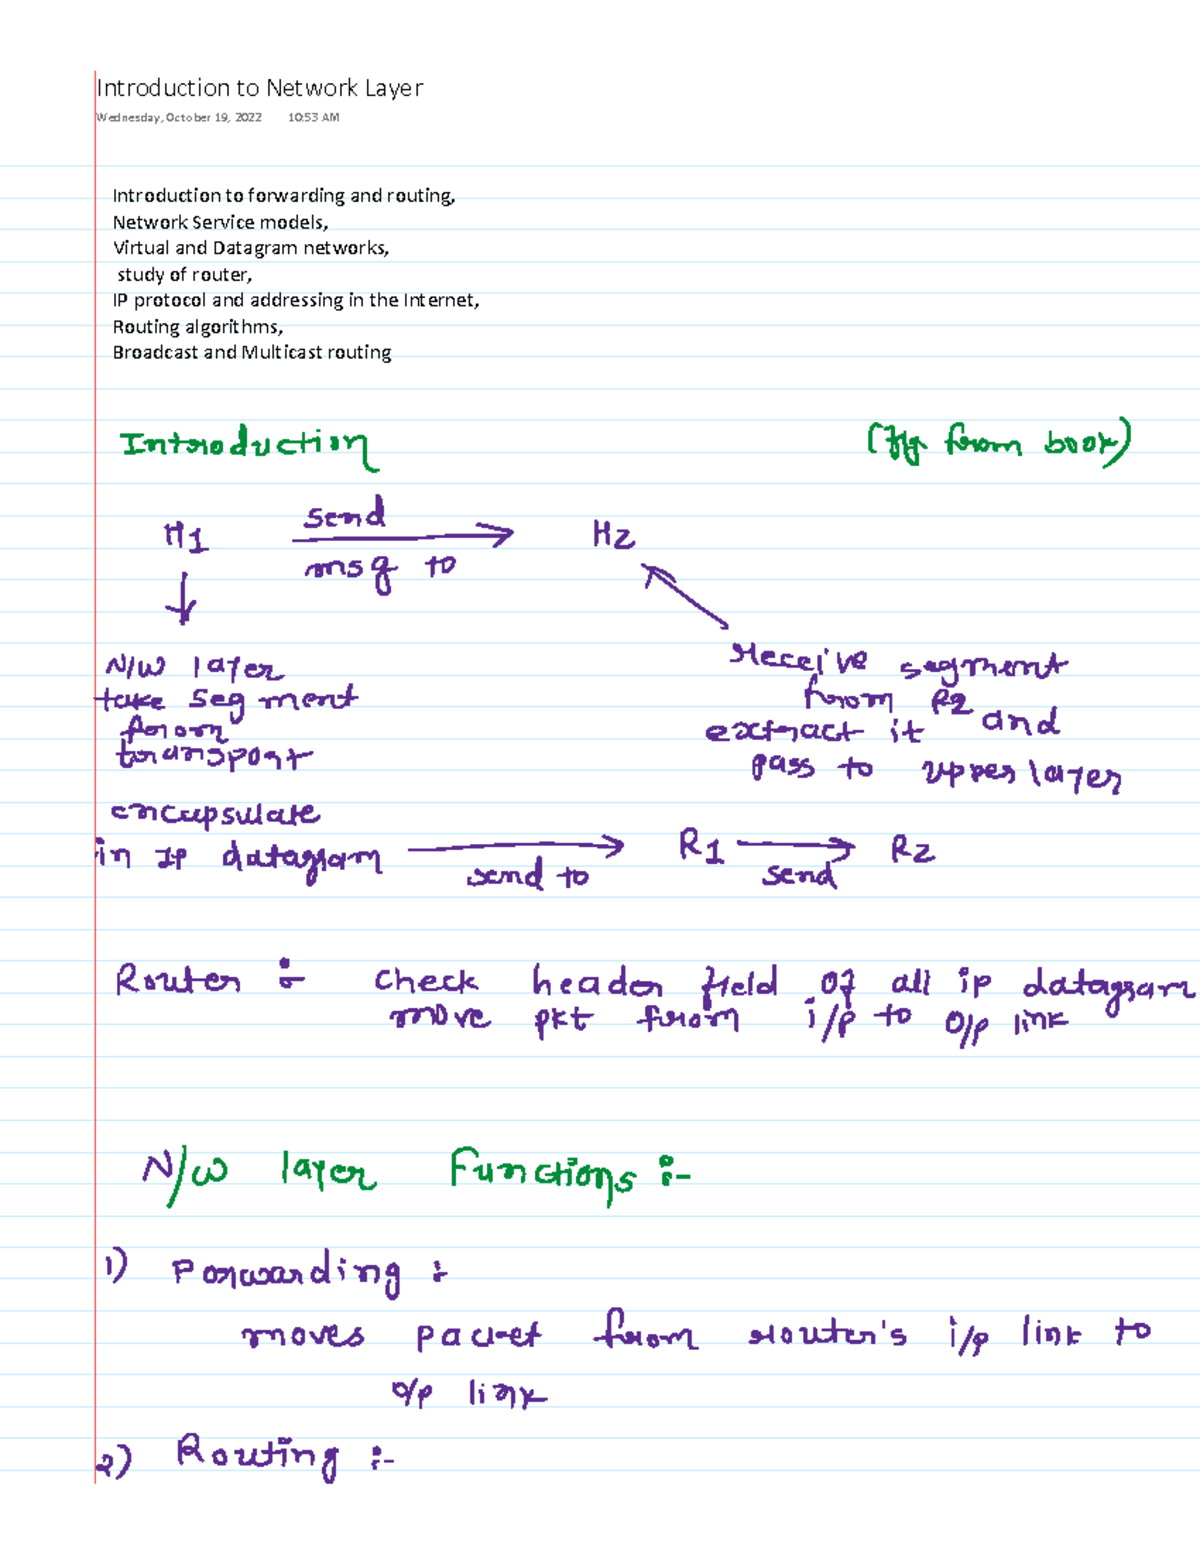 Introduction to Network Layer
Wednesday, October 19, 2022 10:53 AM
Introduction to forwarding and routing,
Network Service models,
Virtual and Datagram networks,
study of router,
IP protocol and addressing in the Internet,
Routing algorithms,
Broadcast and Multicast routing
Introduction (fig from book)
H1 send msg to H2
N/W layer
take segment
from
transport
receive segment
from R2 and
extract it
pass to upper layer
encapsulate
in IP datagram send to R1 send R2
Router :- check header field of all ip datagram
move pkt from i/p to o/p link
N/W layer Functions :-
1) Forwarding :-
moves packet from router's i/p link to
o/p link
2) Routing :-